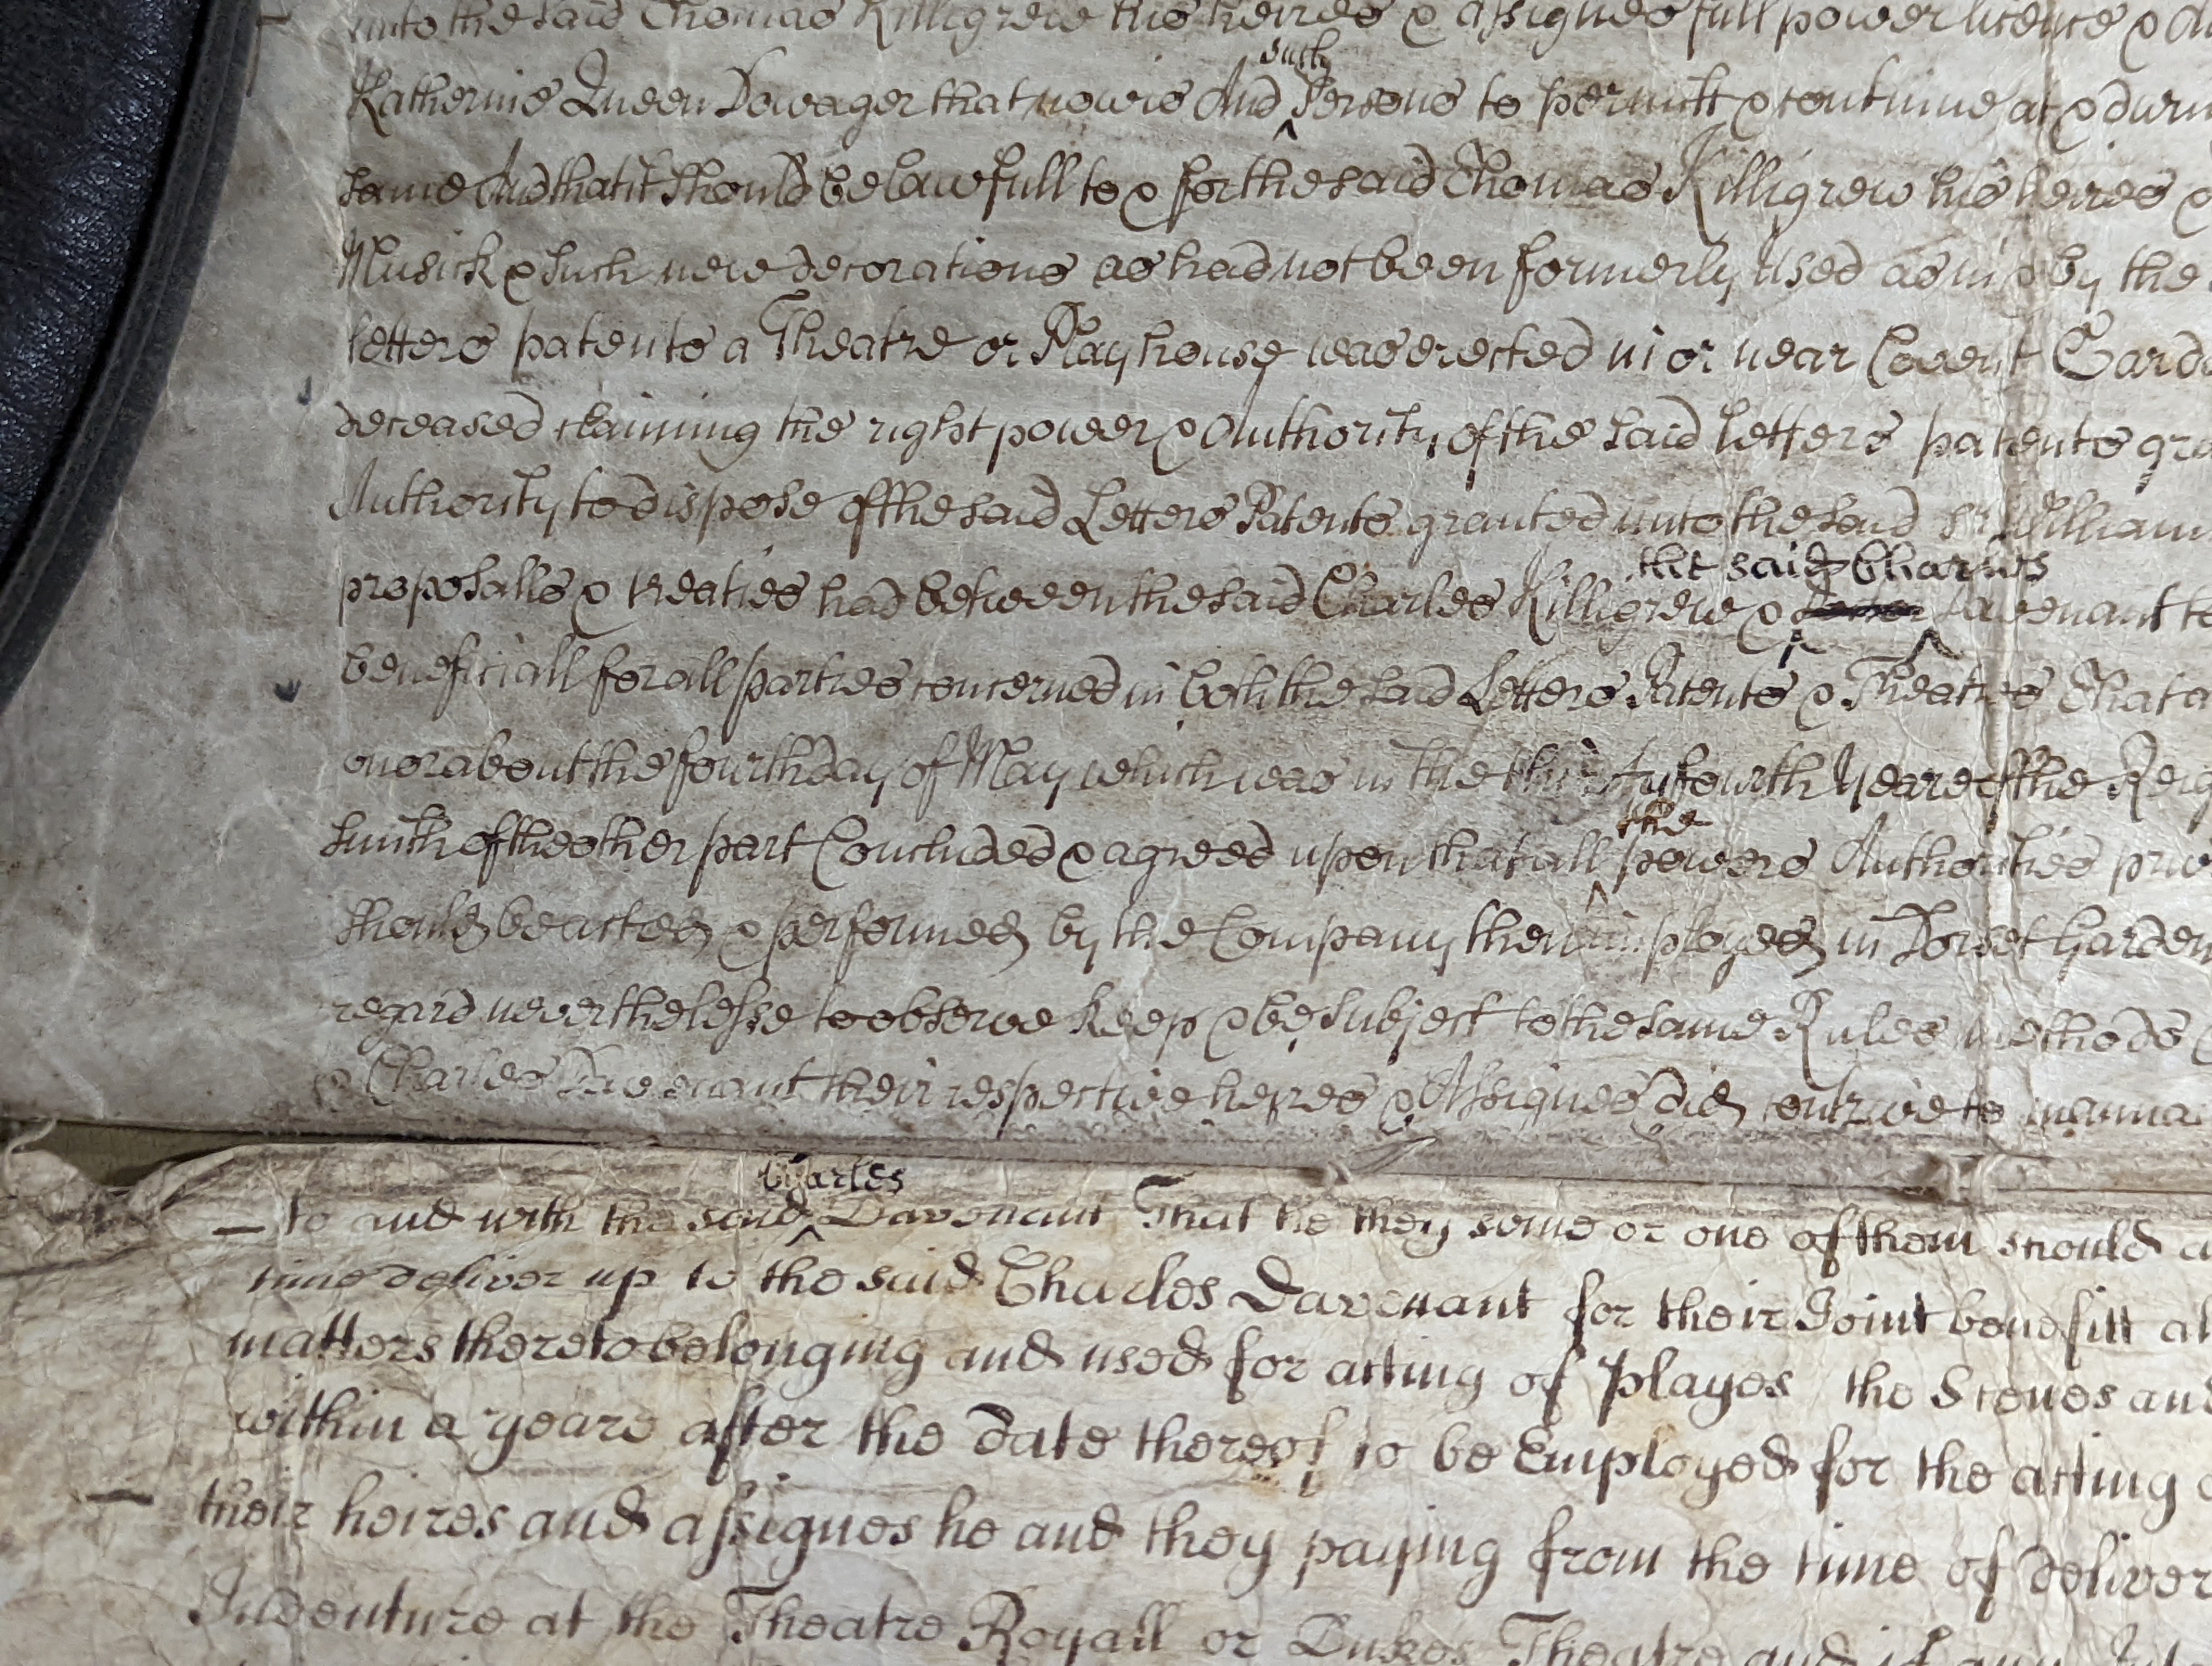 unto the said Thomas Killigrew his heires & assignes full power licence &
such
Katherine Queen Dowager that now is And Persons to permitt & continue at & durin
same And that it should be lawfull to & for the said Thomas Killigrew his heires &
Musick & such new decorations as had not been formerly used as in & by the
letters patents a Theatre or Playhouse was erected in or near Covent Garde
deceased claiming the right power & Authority of the said letters patents gra
Authority to dispose of the said Letters Patents granted unto the said Sr William
the said Charles
proposalls & treaties had between the said Charles Killigrew & Davenant to
beneficiall for all parties concerned in both the said Letters Patents & Theatres That a
on or about the fourth day of May which was in the thirty fourth Yeare of the Reig
the
Smith of the other part Concluded & agreed upon that all powers Authorities priv
should be acted & performed by the Company then imployed in Dorset Garden
regard neverthelesse to observe keep & be subject to the same Rules methods
& Charles Davenant their respective heires & Assignes did contrive to
Charles
to and with the said Davenant That he they some or one of them should a
time deliver up to the said Charles Davenant for their Joint benefitt al
matters thereto belonging and used for acting of Playes the Scenes and
within a yeare after the date thereof to be Employed for the acting
their heires and assignes he and they paying from the time of deliver
Indenture at the Theatre Royall or Dukes Theatre and if any